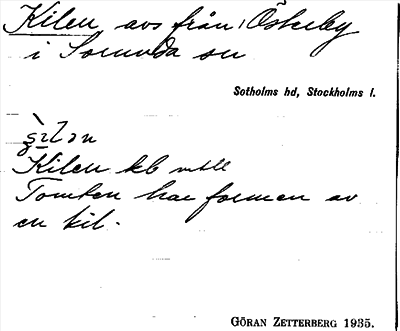 Kilen avs från Österby
i Sorunda sn
Sotholms hd, Stockholms l.
Kilen kb
Tomten har formen av
en kil.
GÖRAN ZETTERBERG 1935.